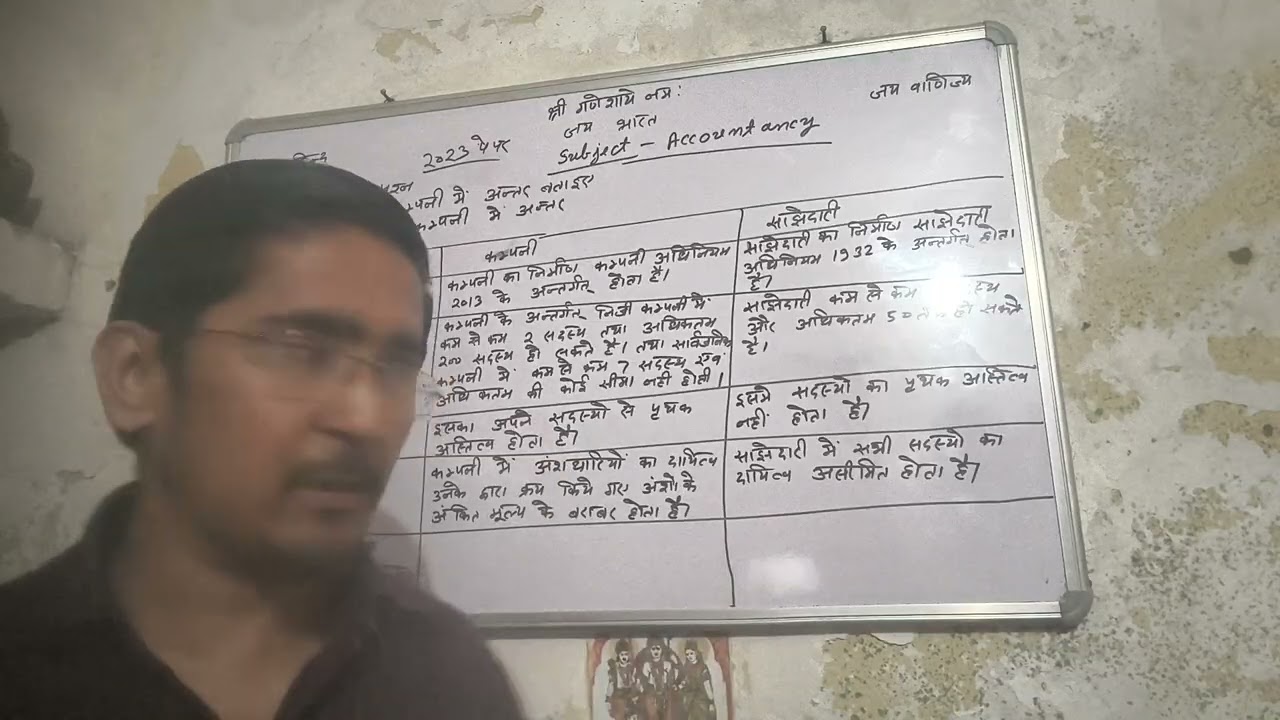 श्री गणेशाये नमः
जय वाणिज्य
जय भारत
2023 पेपर
Subject - Accountancy
प्रश्न
कम्पनी में अन्तर बताइए
कम्पनी में अन्तर
कम्पनी
कम्पनी का निर्माण कम्पनी अधिनियम
2013 के अन्तर्गत् होता है।
कम्पनी के अन्तर्गत् निजी कम्पनी में
कम से कम 2 सदस्य तथा अधिकतम
200 सदस्य हो सकते है। तथा सार्वजनिक
कम्पनी में कम से कम 7 सदस्य एवं
अधिकतम की कोई सीमा नही होती।
इसका अपने सदस्यो से पृथक
अस्तित्व होता है।
कम्पनी में अंशधारियों का दायित्व
उनके द्वारा क्रय किये गए अंशो के
अंकित मूल्य के बराबर होता है।
साझेदारी
साझेदारी का निर्माण साझेदारी
अधिनियम 1932 के अन्तर्गत् होता
है।
साझेदारी कम से कम
और अधिकतम 50 हो सकते
है।
इसमे सदस्यो का पृथक अस्तित्व
नहीं होता है।
साझेदारी में सभी सदस्यो का
दायित्व असीमित होता है।